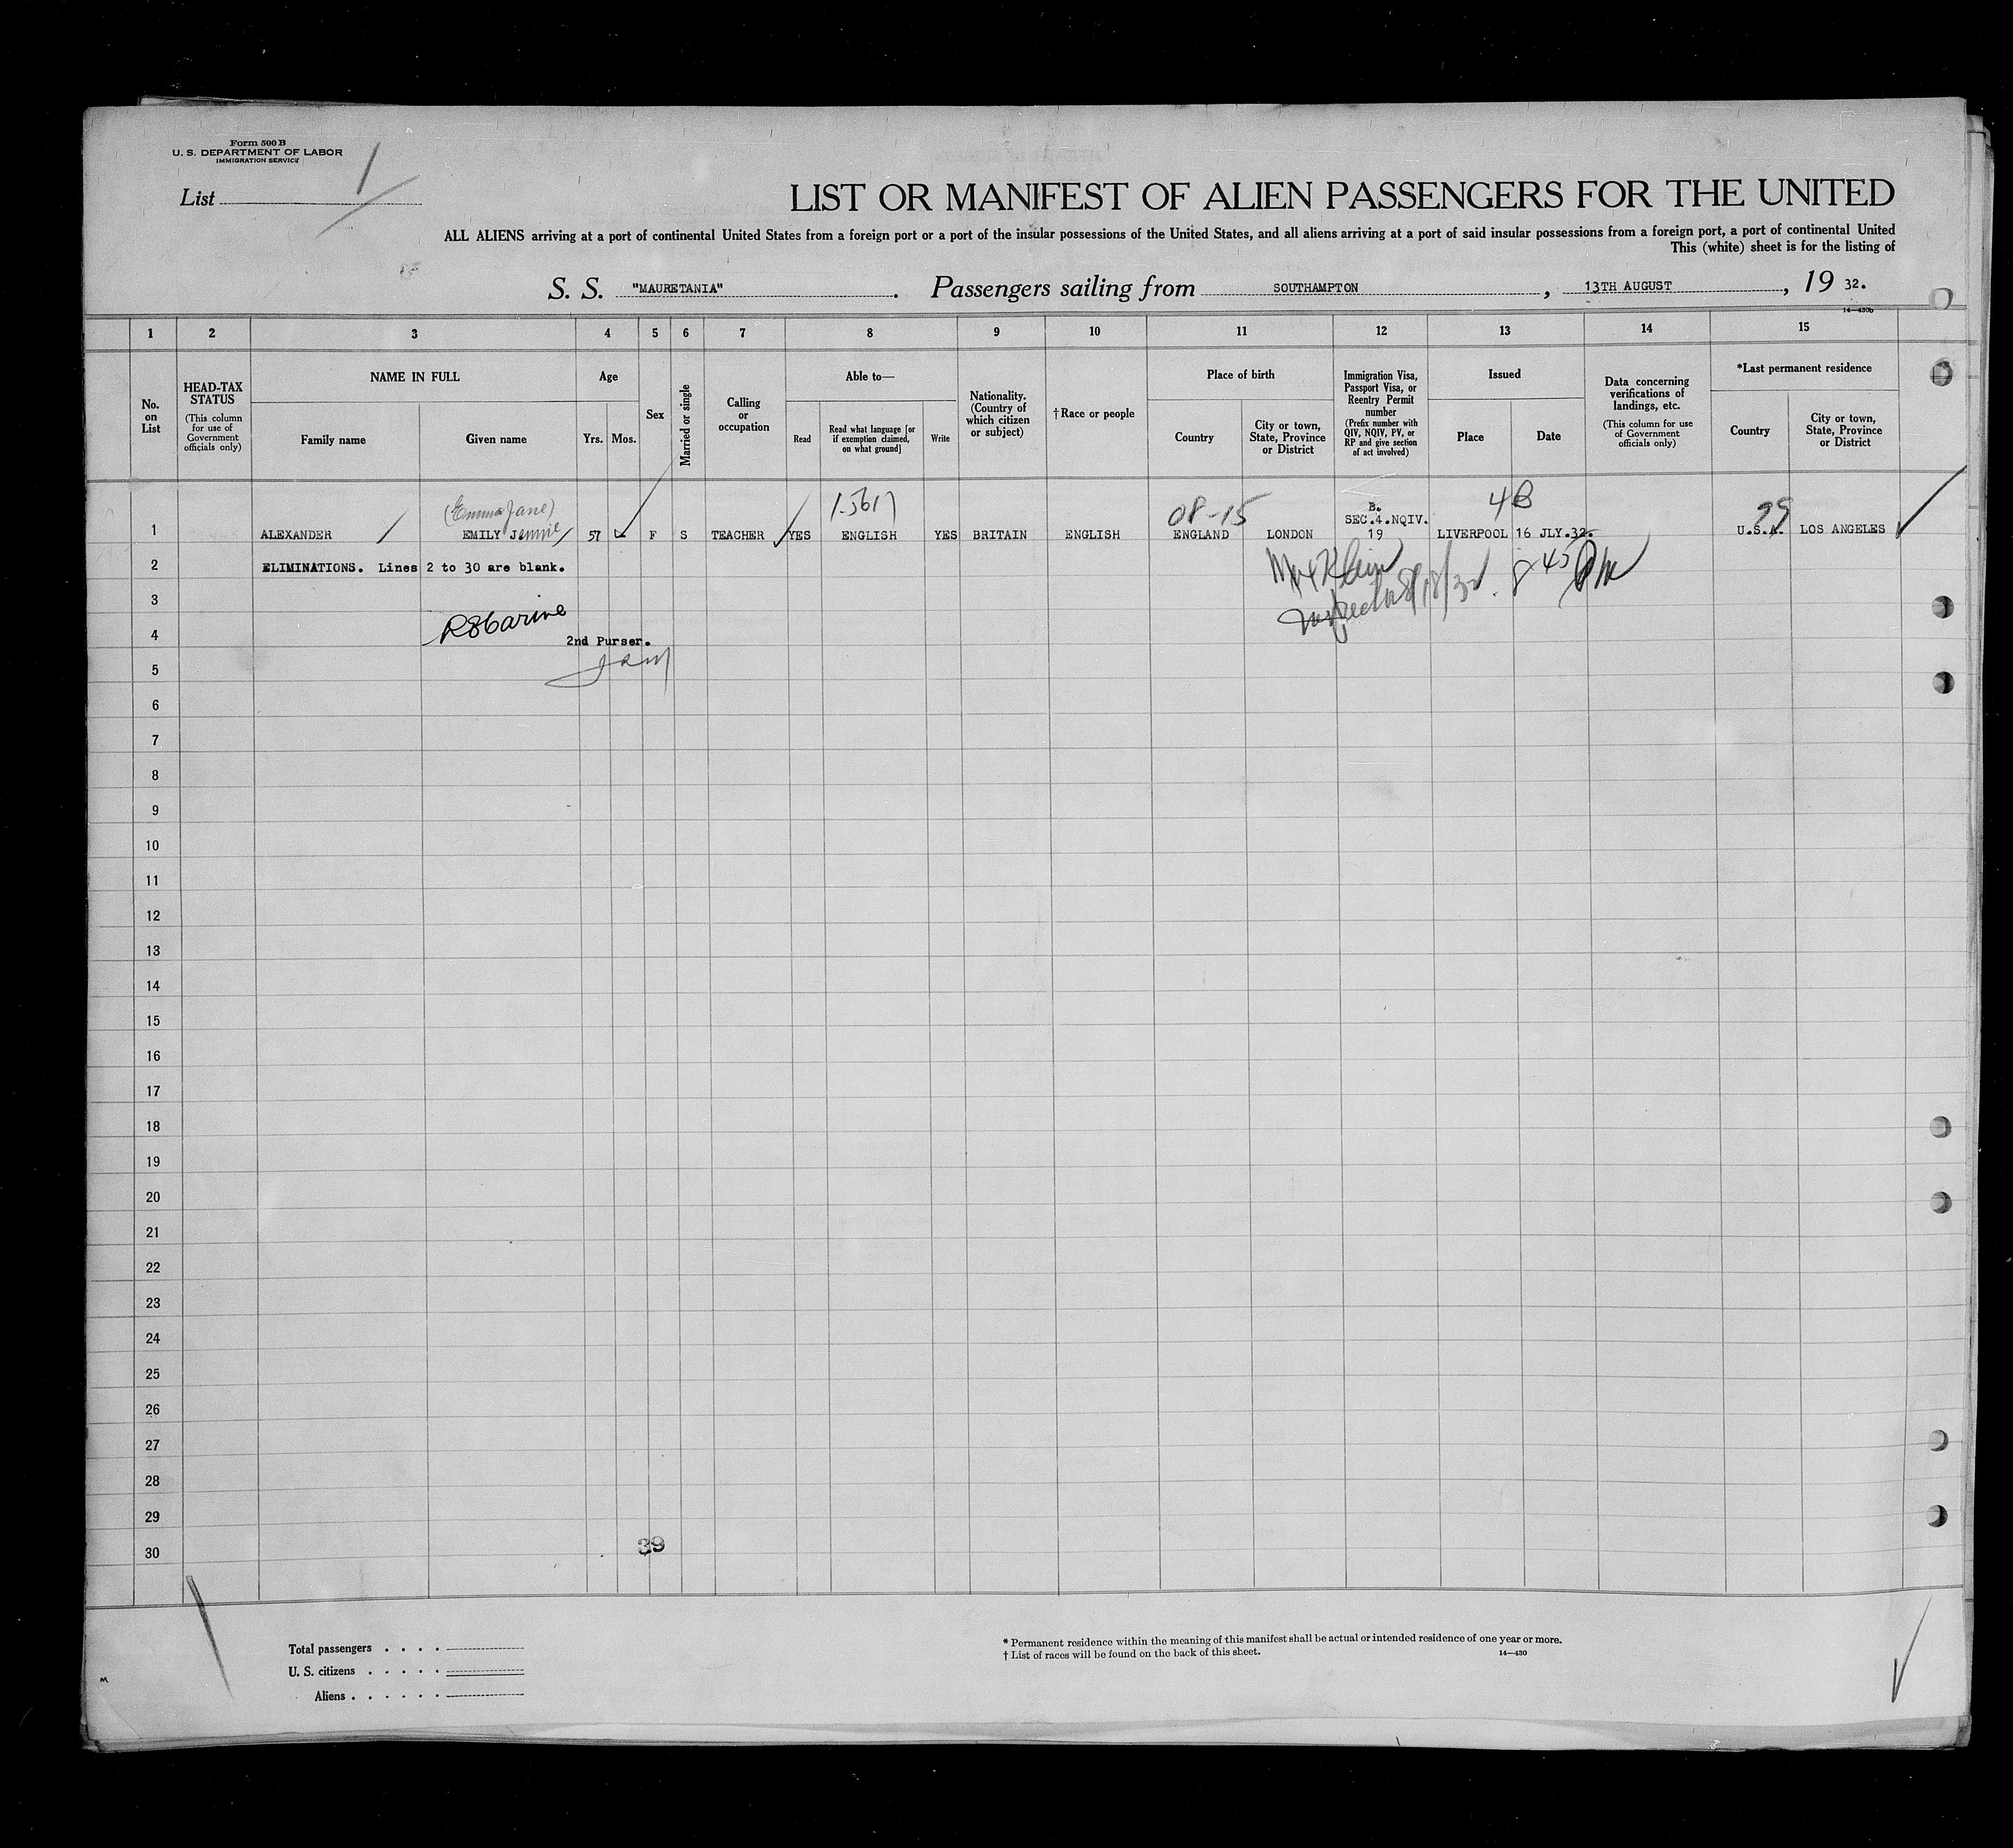 Form 500 B
U. S. DEPARTMENT OF LABOR
IMMIGRATION SERVICE
List 1
LIST OR MANIFEST OF ALIEN PASSENGERS FOR THE UNITED
ALL ALIENS arriving at a port of continental United States from a foreign port or a port of the insular possessions of the United States, and all aliens arriving at a port of said insular possessions from a foreign port, a port of continental United
This (white) sheet is for the listing of
S. S. "MAURETANIA". Passengers sailing from SOUTHAMPTON, 13TH AUGUST, 19 32.
14—430b
1 2 3 4 5 6 7 8 9 10 11 12 13 14 15
No. on List
HEAD-TAX STATUS
(This column for use of Government officials only)
NAME IN FULL
Family name
Given name
Age
Yrs. Mos.
Sex
Married or single
Calling or occupation
Able to—
Read
Read what language [or if exemption claimed, on what ground]
Write
Nationality. (Country of which citizen or subject)
†Race or people
Place of birth
Country
City or town, State, Province or District
Immigration Visa, Passport Visa, or Reentry Permit number
(Prefix number with QIV, NQIV, PV, or RP and give section of act involved)
Issued
Place
Date
Data concerning verifications of landings, etc.
(This column for use of Government officials only)
*Last permanent residence
Country
City or town, State, Province or District
(Emma Jane) 1-5617 08-15 B. 4B 99
SEC.4.NQIV.
1 ALEXANDER EMILY Jennie 57 F S TEACHER YES ENGLISH YES BRITAIN ENGLISH ENGLAND LONDON 19 LIVERPOOL 16 JLY.32. U.S.A. LOS ANGELES
2 ELIMINATIONS. Lines 2 to 30 are blank. 8 45 PM
3 Inspector 8/18/32
4 2nd Purser.
5
6
7
8
9
10
11
12
13
14
15
16
17
18
19
20
21
22
23
24
25
26
27
28
29
30
39
Total passengers . . . .
U. S. citizens . . . . .
Aliens . . . . . .
* Permanent residence within the meaning of this manifest shall be actual or intended residence of one year or more.
† List of races will be found on the back of this sheet.
14—430